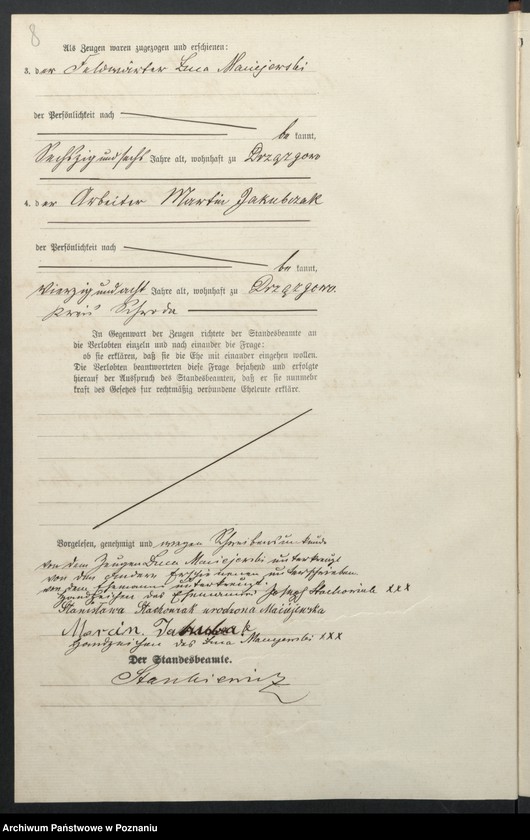 8
Als Zeugen waren zugezogen und erschienen:
3. der Feldwärter Luca Maciejewski
der Persönlichkeit nach
be kannt,
Sechszig und sechs Jahre alt, wohnhaft zu Drzązgowo
4. der Arbeiter Martin Jakubczak
der Persönlichkeit nach
be kannt,
Vierzig und acht Jahre alt, wohnhaft zu Drzązgowo.
Kreis Schroda
In Gegenwart der Zeugen richtete der Standesbeamte an
die Verlobten einzeln und nach einander die Frage:
ob sie erklären, daß sie die Ehe mit einander eingehen wollen.
Die Verlobten beantworteten diese Frage bejahend und erfolgte
hierauf der Ausspruch des Standesbeamten, daß er sie nunmehr
kraft des Gesetzes für rechtmäßig verbundene Eheleute erkläre.
Vorgelesen, genehmigt und wegen Schreibensunkunde
von dem Zeugen Luca Maciejewski unterkreuzt
von den andern Erschienenen unterschrieben
von dem Ehemann unterkreuzt.
Handzeichen des Ehemannes Joseph Stachowiak xxx
Stanisława Stachowiak urodzona Maciejewska
Marcin Jakubczak
Handzeichen des Luca Maciejewski xxx
Der Standesbeamte.
Stankiewicz
Archiwum Państwowe w Poznaniu